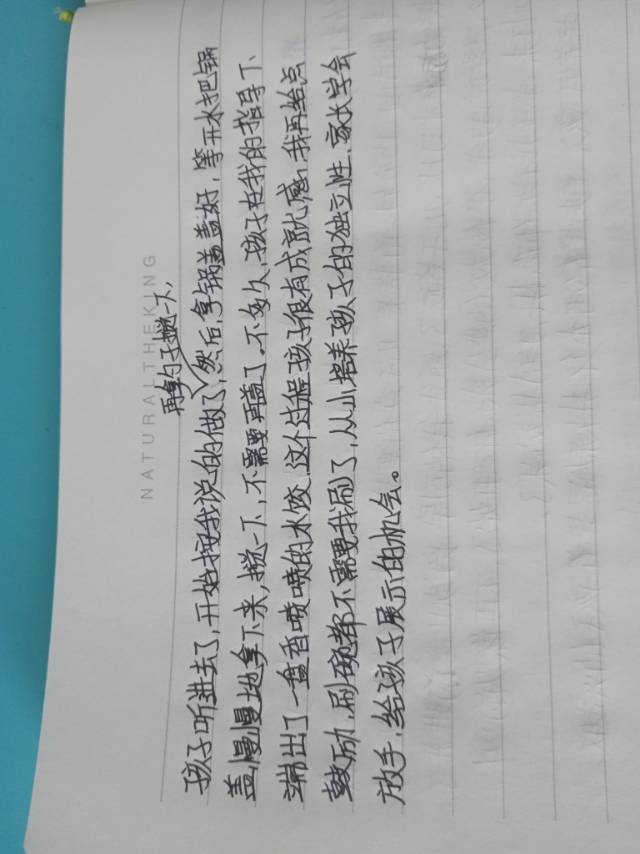 NATURALTHEKING
再拿勺子搅一下,
孩子听进去了,开始按我说的做了,然后,拿锅盖盖好,等开水把锅
盖,慢慢地拿下来,搅一下,不需要再盖了。不多久,孩子在我的指导下、
端出了一盘香喷喷的水饺,这个过程孩子很有成就感,我再给点
鼓励,刷碗都不需要我刷了,从小培养孩子的独立性,家长学会
放手,给孩子展示的机会。